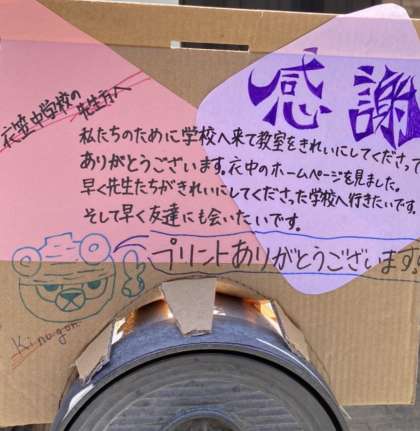 衣笠中学校の
先生方へ
感謝
私たちのために学校へ来て教室をきれいにしてくださって
ありがとうございます。衣中のホームページを見ました。
早く先生たちがきれいにしてくださった学校へ行きたいです。
そして早く友達にも会いたいです。
プリントありがとうございます!!
Kinugon